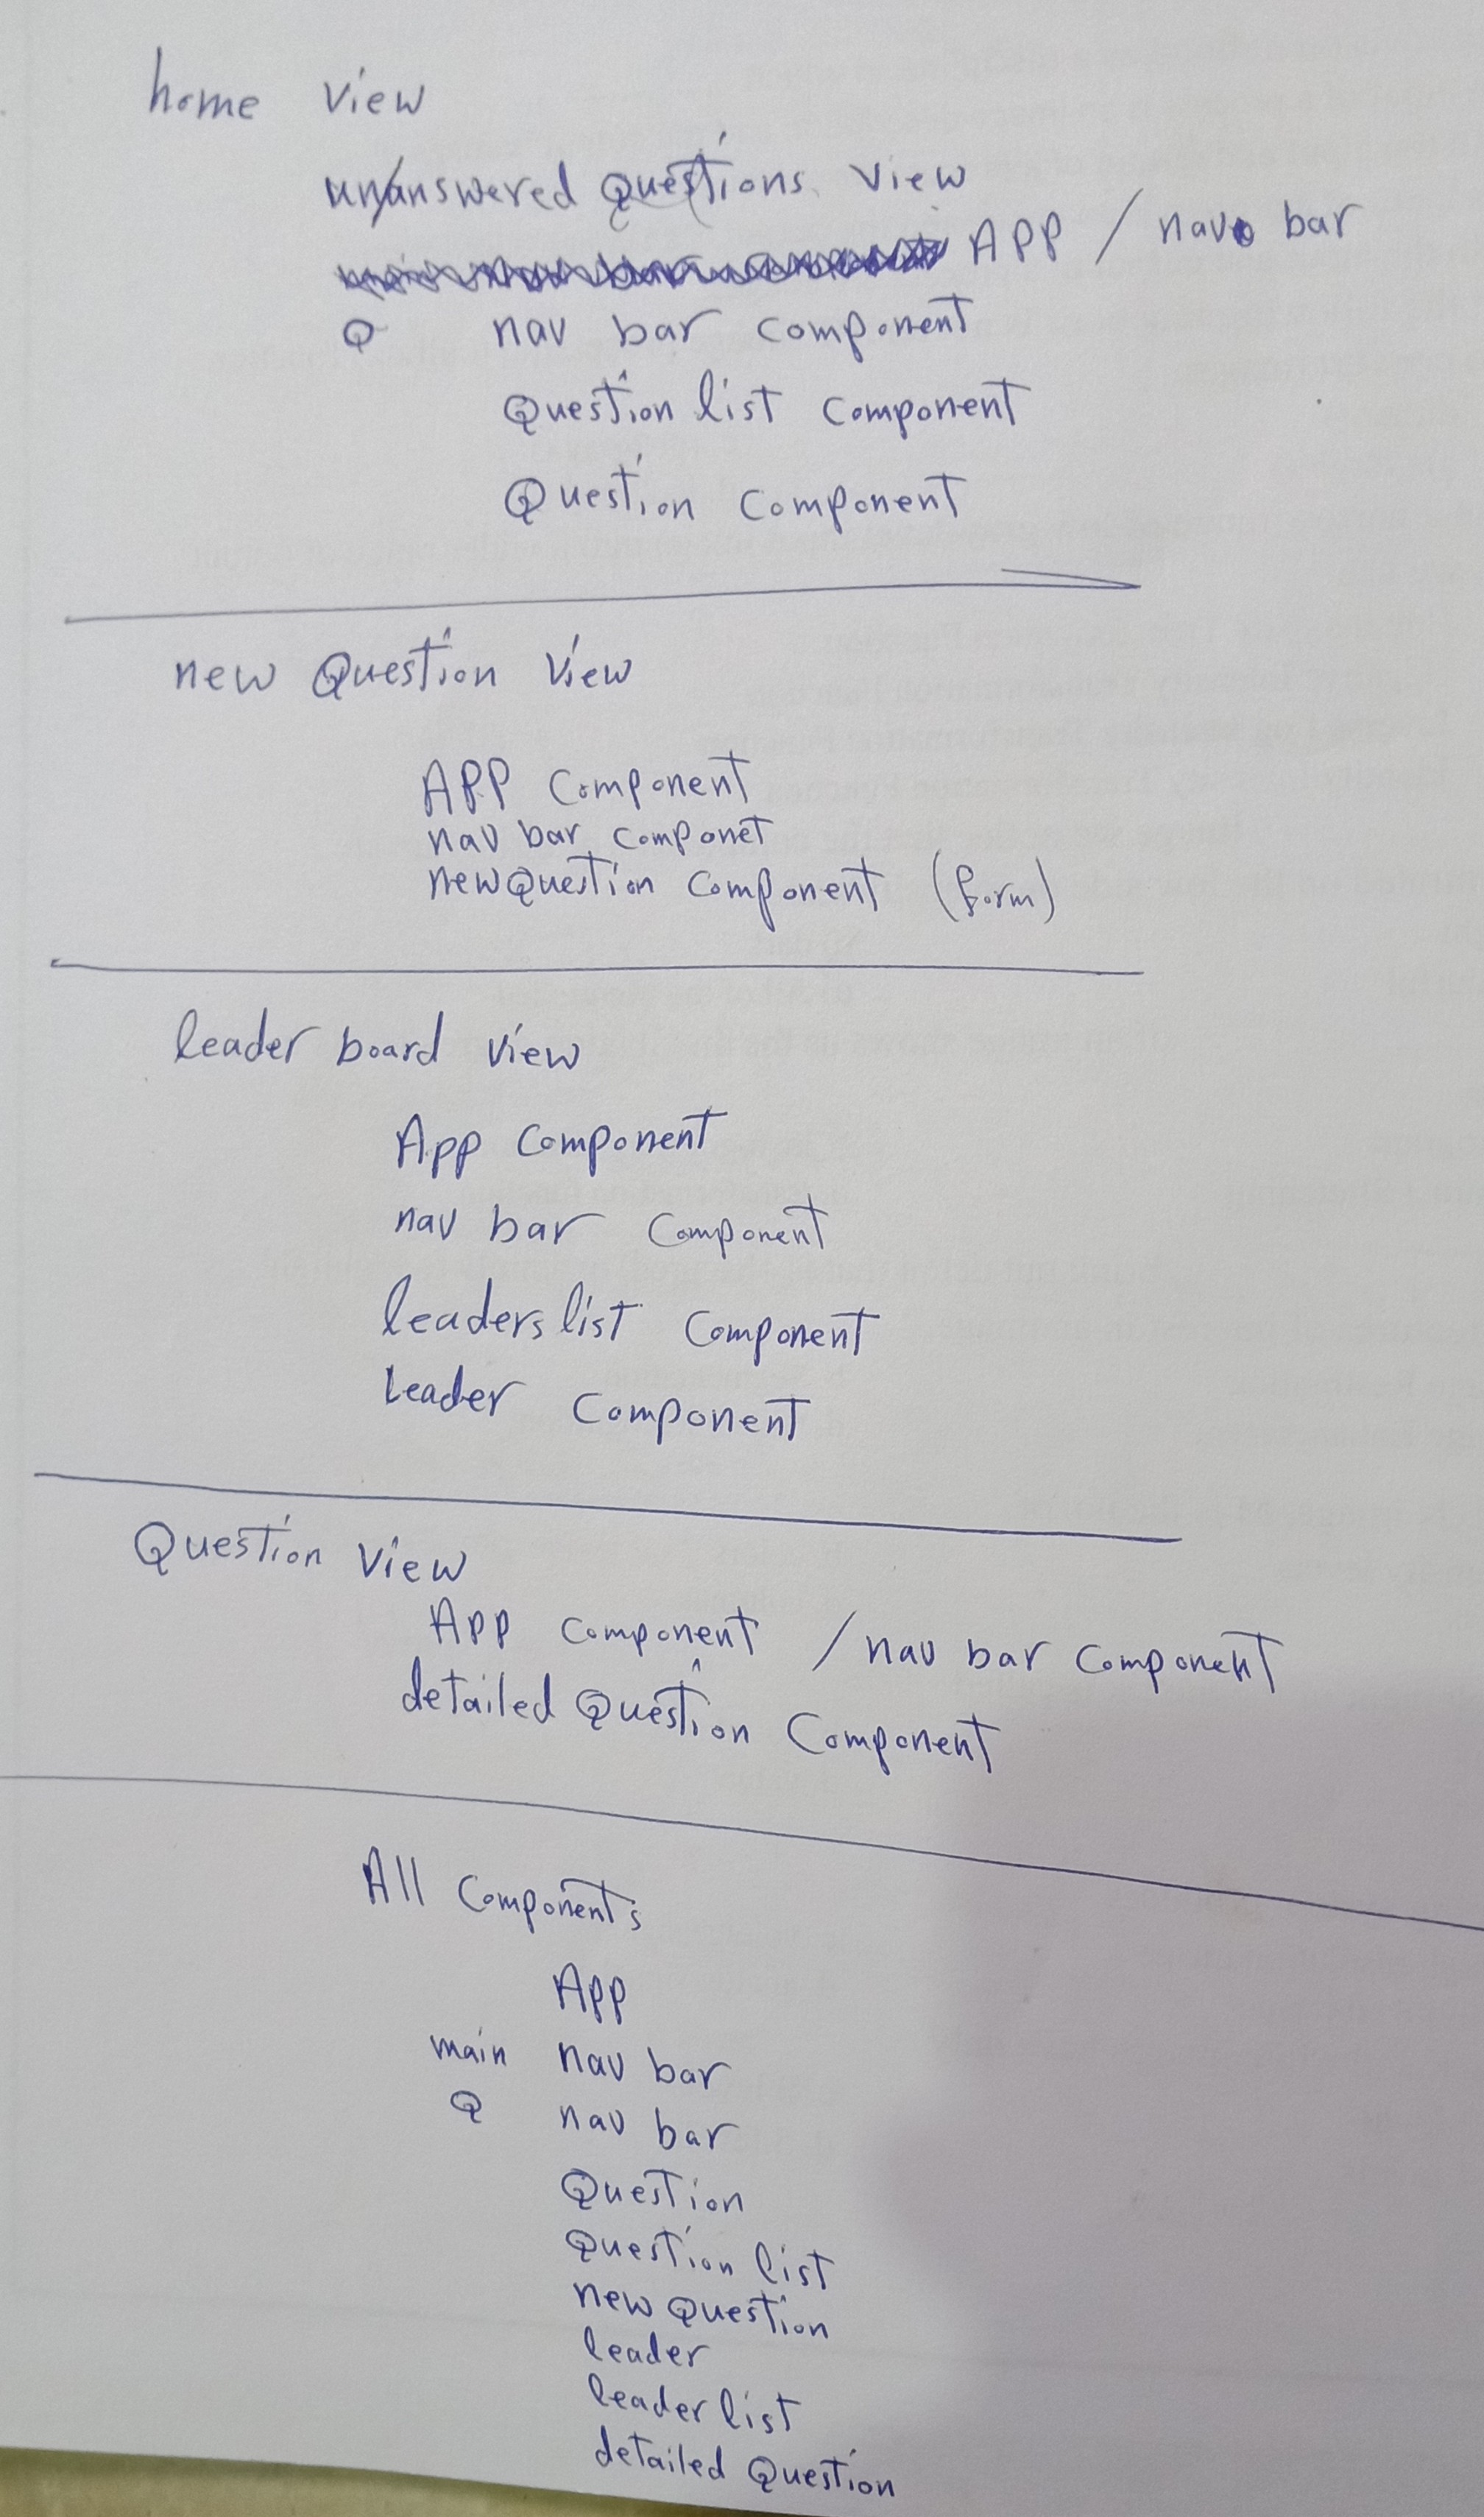 home view
un/answered Questions view
APP / nav bar
Q nav bar component
Question list component
Question component
new Question view
APP component
nav bar componet
newQuestion component (form)
leader board view
App component
nav bar component
leaders list component
leader component
Question view
App component / nav bar component
detailed Question component
All components
App
main nav bar
Q nav bar
Question
Question list
new Question
leader
leader list
detailed Question